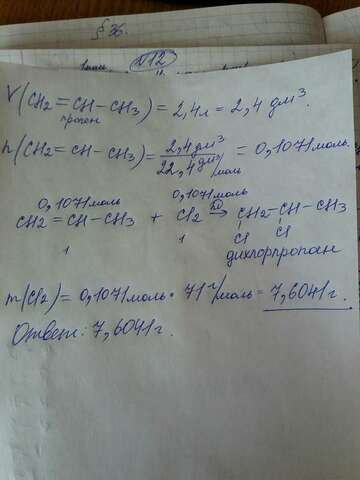 § 36.
N12
V(CH2=CH-CH3) = 2,4л = 2,4 дм³.
пропен
n(CH2=CH-CH3) = 2,4 дм³ / 22,4 дм³/моль = 0,1071 моль.
0,1071 моль 0,1071 моль
CH2=CH-CH3 + Cl2 → CH2-CH-CH3
1 1 Cl Cl
дихлорпропан
m(Cl2) = 0,1071 моль · 71 г/моль = 7,6041 г.
Ответ: 7,6041 г.